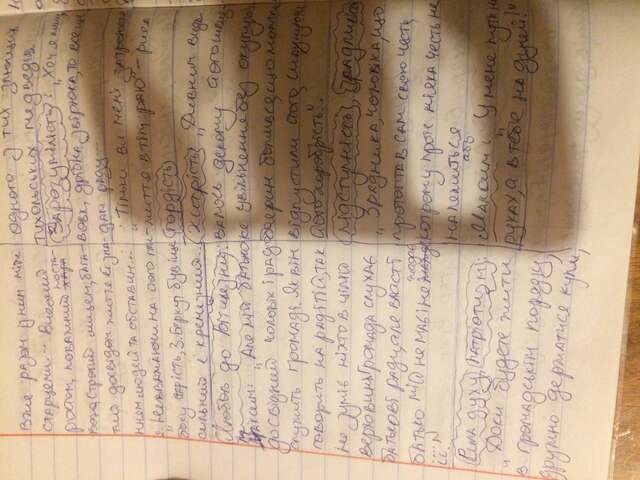 вже разом з ним між
старцями... Високий
ростом, поважний поста-
вою, строгий лицем, бага-
тий досвідом життя й зна-
нням людей та обставин...
"Незважаючи на свою гли-
боку старість, З. Беркут був іще
сильний і кремезний."
Любов до Вітчизни:
Максим: "Але мій батько
досвідний чоловік і рад
служить громаді. Як він
говорить на раді тій, так
не зуміє ніхто в цілій
верховині. Громада слухає
батькові ради, але власті
батько мій не має і не жадає
її."
Сила духу, патріотизм:
"Доки будете жити
в громадськім порядку,
дружно держатися купи,
одного з тих
тухольських медведів
Зарозумілість: "Хоч я
вовк, дрібна звірюка, то все ще
дам раду...
"Тільки ви мені
життє в тім раю" -
гордість
Хитрість: "Дивним вида-
валось декому його швид-
ке увільнення без окупу,
боярин божився, що монголи
відпустили його, шануючи
його хоробрість".
Підступність, зрадливість
"Зрадника, чоловіка, що
протоптав сам свою честь,
котрому проте ніяка честь не
належиться
або
Максим: "У мене пута на
руках, а в тебе на душі!"